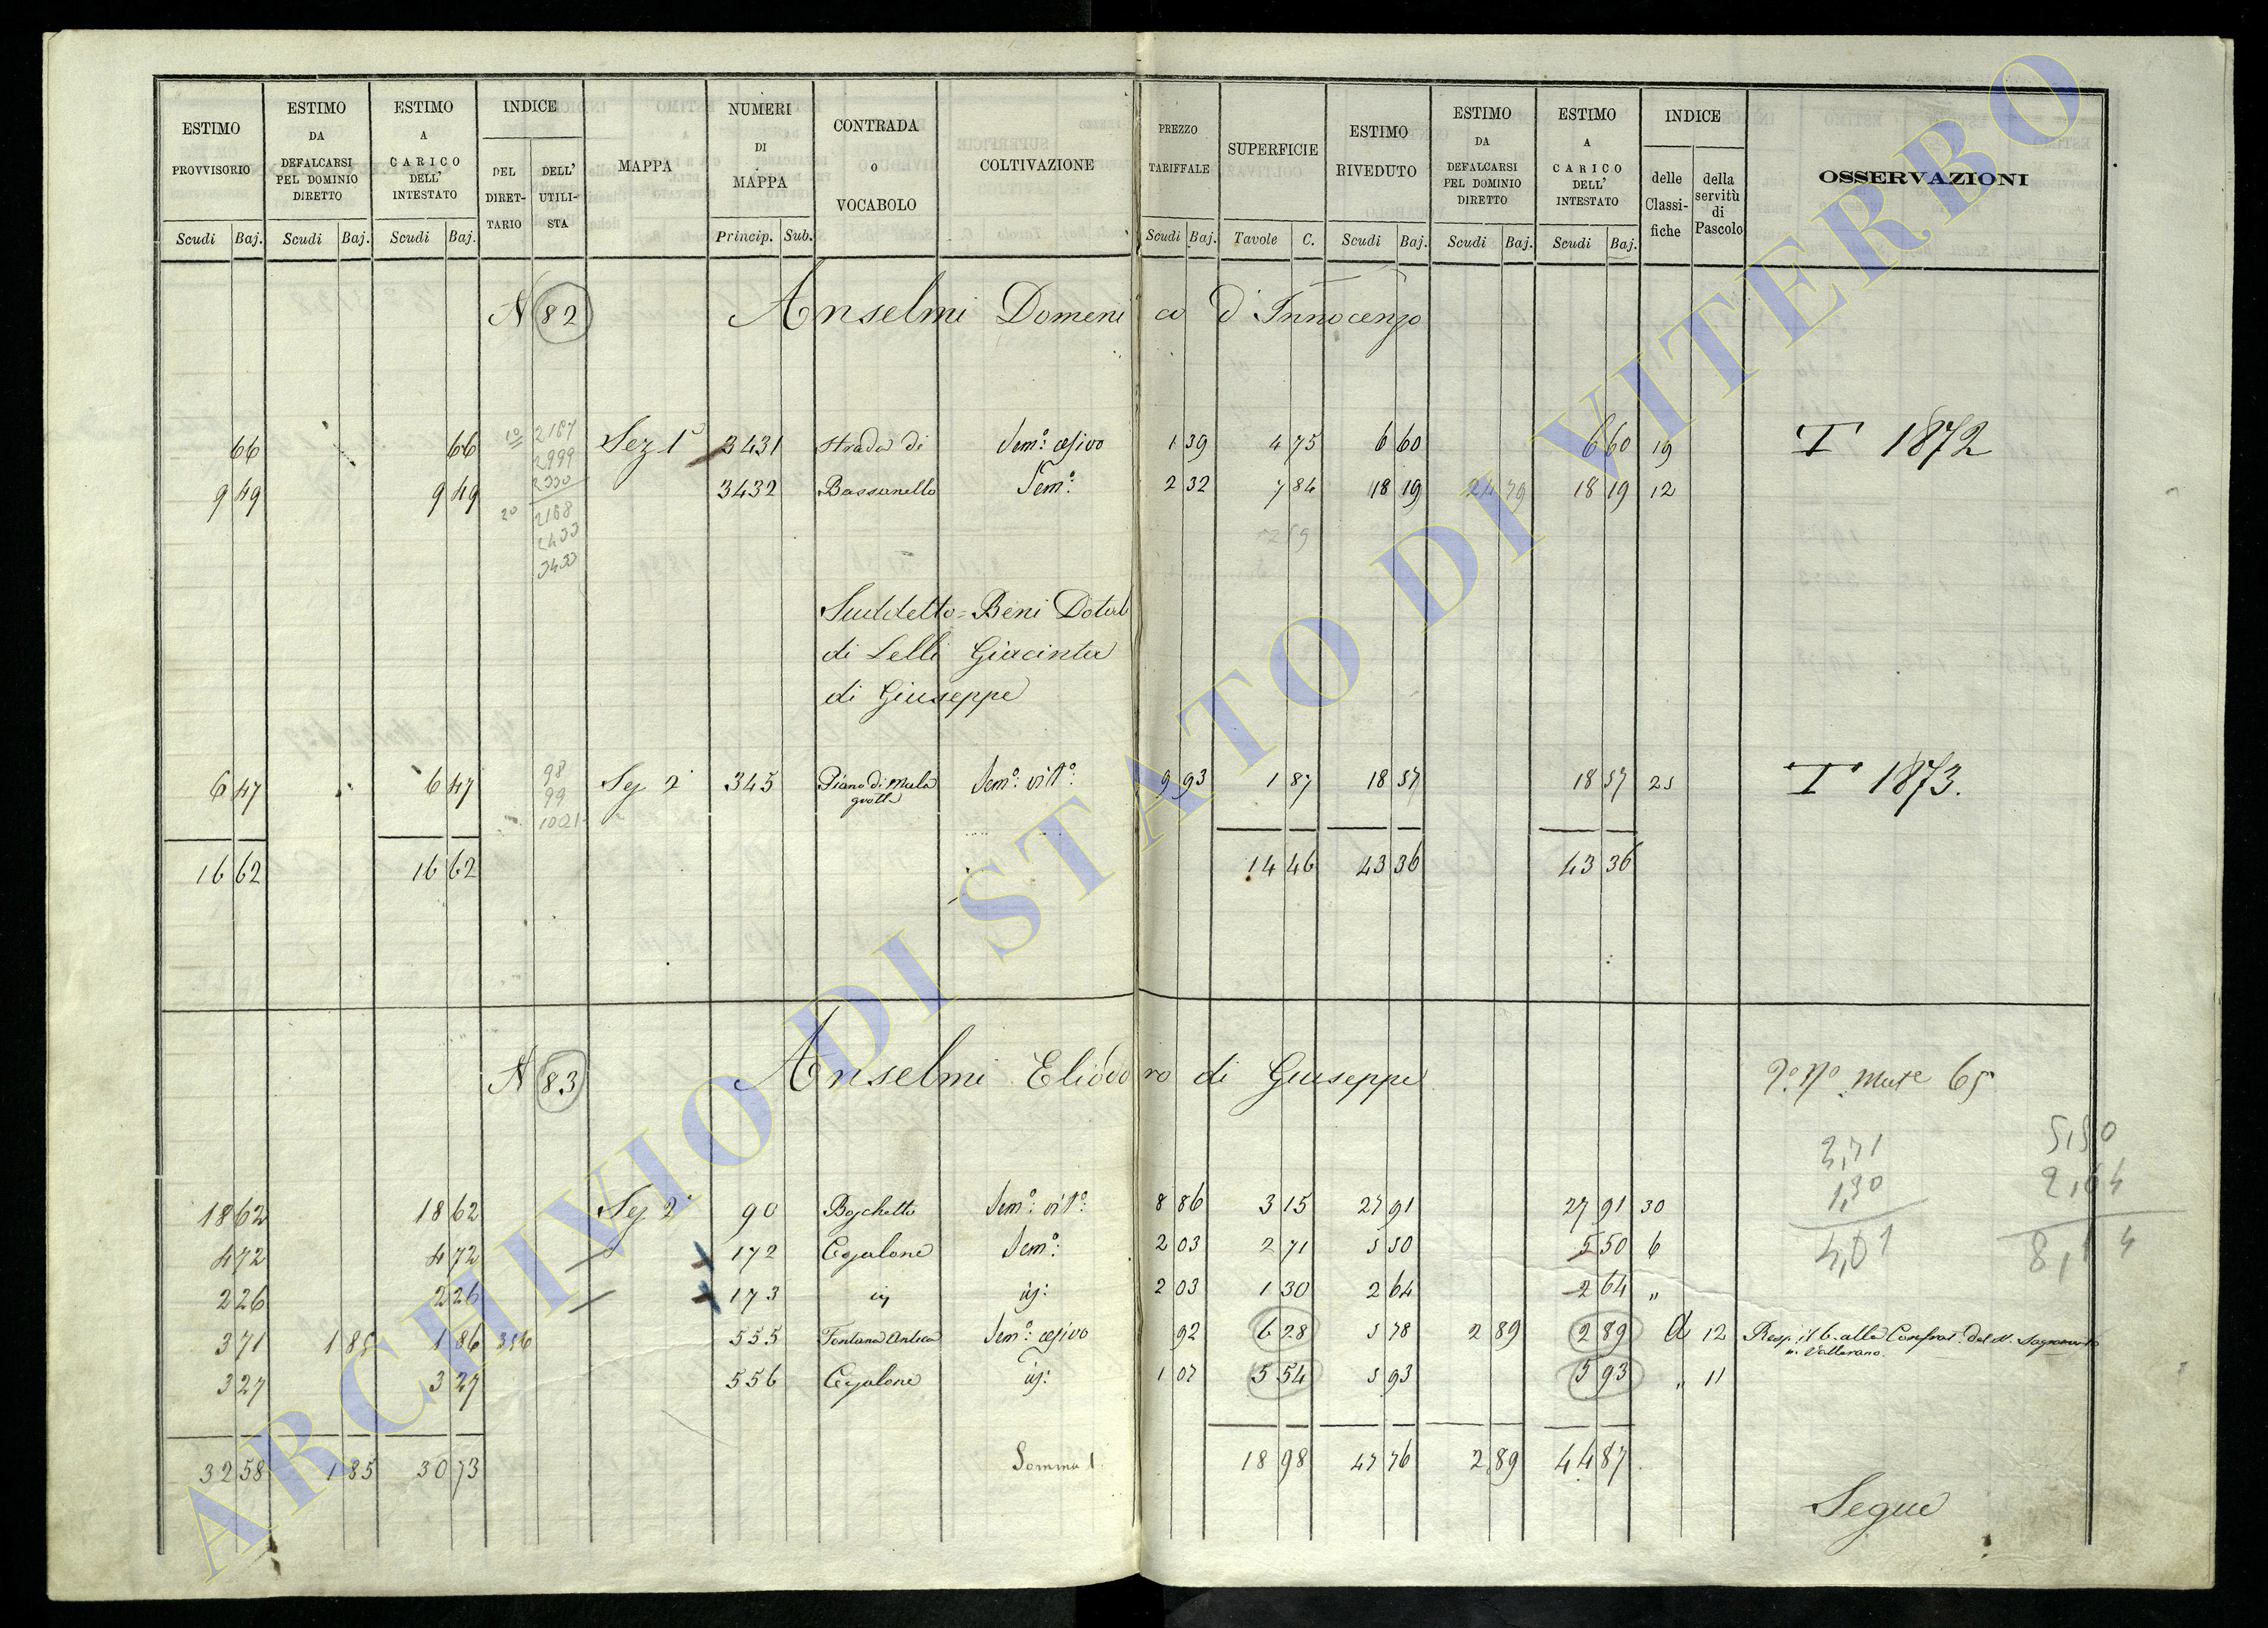 ESTIMO PROVVISORIO | ESTIMO DA DEFALCARSI PEL DOMINIO DIRETTO | ESTIMO A CARICO DELL' INTESTATO | INDICE | MAPPA | NUMERI DI MAPPA | CONTRADA o VOCABOLO | COLTIVAZIONE | PREZZO TARIFFALE | SUPERFICIE | ESTIMO RIVEDUTO | ESTIMO DA DEFALCARSI PEL DOMINIO DIRETTO | ESTIMO A CARICO DELL' INTESTATO | INDICE | OSSERVAZIONI
DEL DIRET-TARIO | DELL' UTILI-STA | delle Classi-fiche | della servitù di Pascolo
Scudi Baj. | Scudi Baj. | Scudi Baj. | Princip. Sub. | Scudi Baj. | Tavole C. | Scudi Baj. | Scudi Baj. | Scudi Baj.
N 82 Anselmi Domenico d'Innocenzo
66 | 66 | 1º 2167 | Sez 1ª | 3431 | Strada di | Semº: cesivo | 1 39 | 4 75 | 6 60 | 6 60 | 19 | T 1872
2999
9 49 | 9 49 | 2330 | 3432 | Bassanello | Semº: | 2 32 | 7 84 | 18 19 | 24 79 | 18 19 | 12
2º 2168
2433 | 12 59
3433
Suddetto = Beni Dotali
di Lelli Giacinta
di Giuseppe
6 47 | 6 47 | 98 | Sez 2ª | 345 | Piano di Mala grotta | Semº: vitº: | 9 93 | 1 87 | 18 57 | 18 57 | 25 | T 1873.
99
1021
16 62 | 16 62 | 14 46 | 43 36 | 43 36
N 83 Anselmi Eliodoro di Giuseppe
65
2,71 | 5,50
1,30 | 2,64
4,01 | 8,14
18 62 | 18 62 | Sez 2ª | 90 | Boschetto | Semº: vitº: | 8 86 | 3 15 | 27 91 | 27 91 | 30
4 72 | 4 72 | 172 | Cegalone | Semº: | 2 03 | 2 71 | 5 50 | 5 50 | 6
2 26 | 2 26 | 173 | iv | iv: | 2 03 | 1 30 | 2 64 | 2 64 | "
3 71 | 1 85 | 1 86 | 356 | 555 | Fontana Antica | Semº: cesivo | 92 | 6 28 | 5 78 | 2 89 | 2 89 | d | 12 | Resp. alla Confrat. del S. Sagramento
in Vallerano.
3 27 | 3 27 | 556 | Cegalone | iv: | 1 07 | 5 54 | 5 93 | 5 93 | " | 11
32 58 | 1 85 | 30 73 | Somma | 18 98 | 47 76 | 2 89 | 44 87
Segue
ARCHIVIO DI STATO DI VITERBO